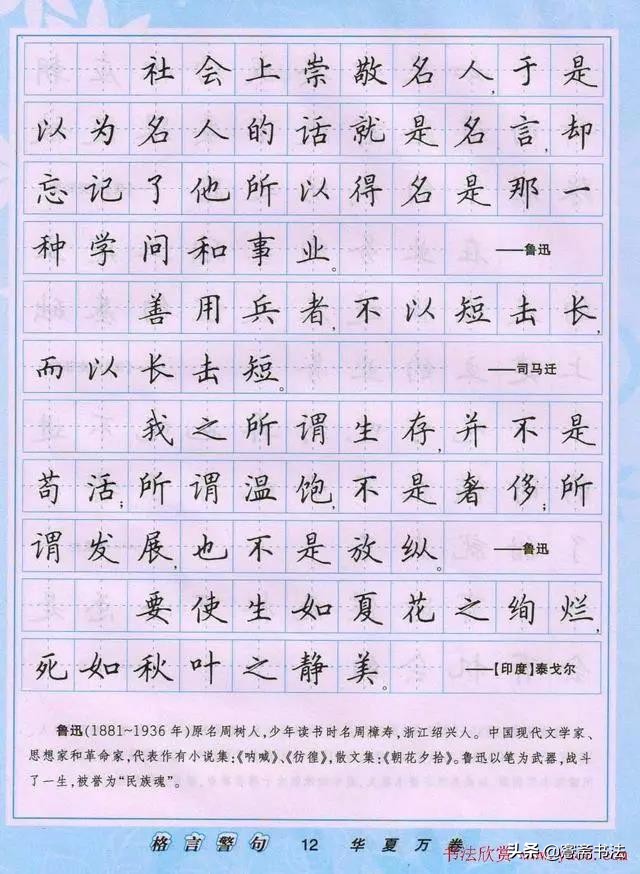 社会上崇敬名人,于是
以为名人的话就是名言,却
忘记了他所以得名是那一
种学问和事业。 ——鲁迅
善用兵者,不以短击长,
而以长击短。 ——司马迁
我之所谓生存,并不是
苟活;所谓温饱,不是奢侈;所
谓发展,也不是放纵。 ——鲁迅
要使生如夏花之绚烂,
死如秋叶之静美。 ——[印度]泰戈尔
鲁迅(1881~1936年)原名周树人,少年读书时名周樟寿,浙江绍兴人。中国现代文学家、
思想家和革命家,代表作有小说集:《呐喊》、《彷徨》,散文集:《朝花夕拾》。鲁迅以笔为武器,战斗
了一生,被誉为“民族魂”。
格言警句 12 华夏万卷
书法欣赏
头条@
书法